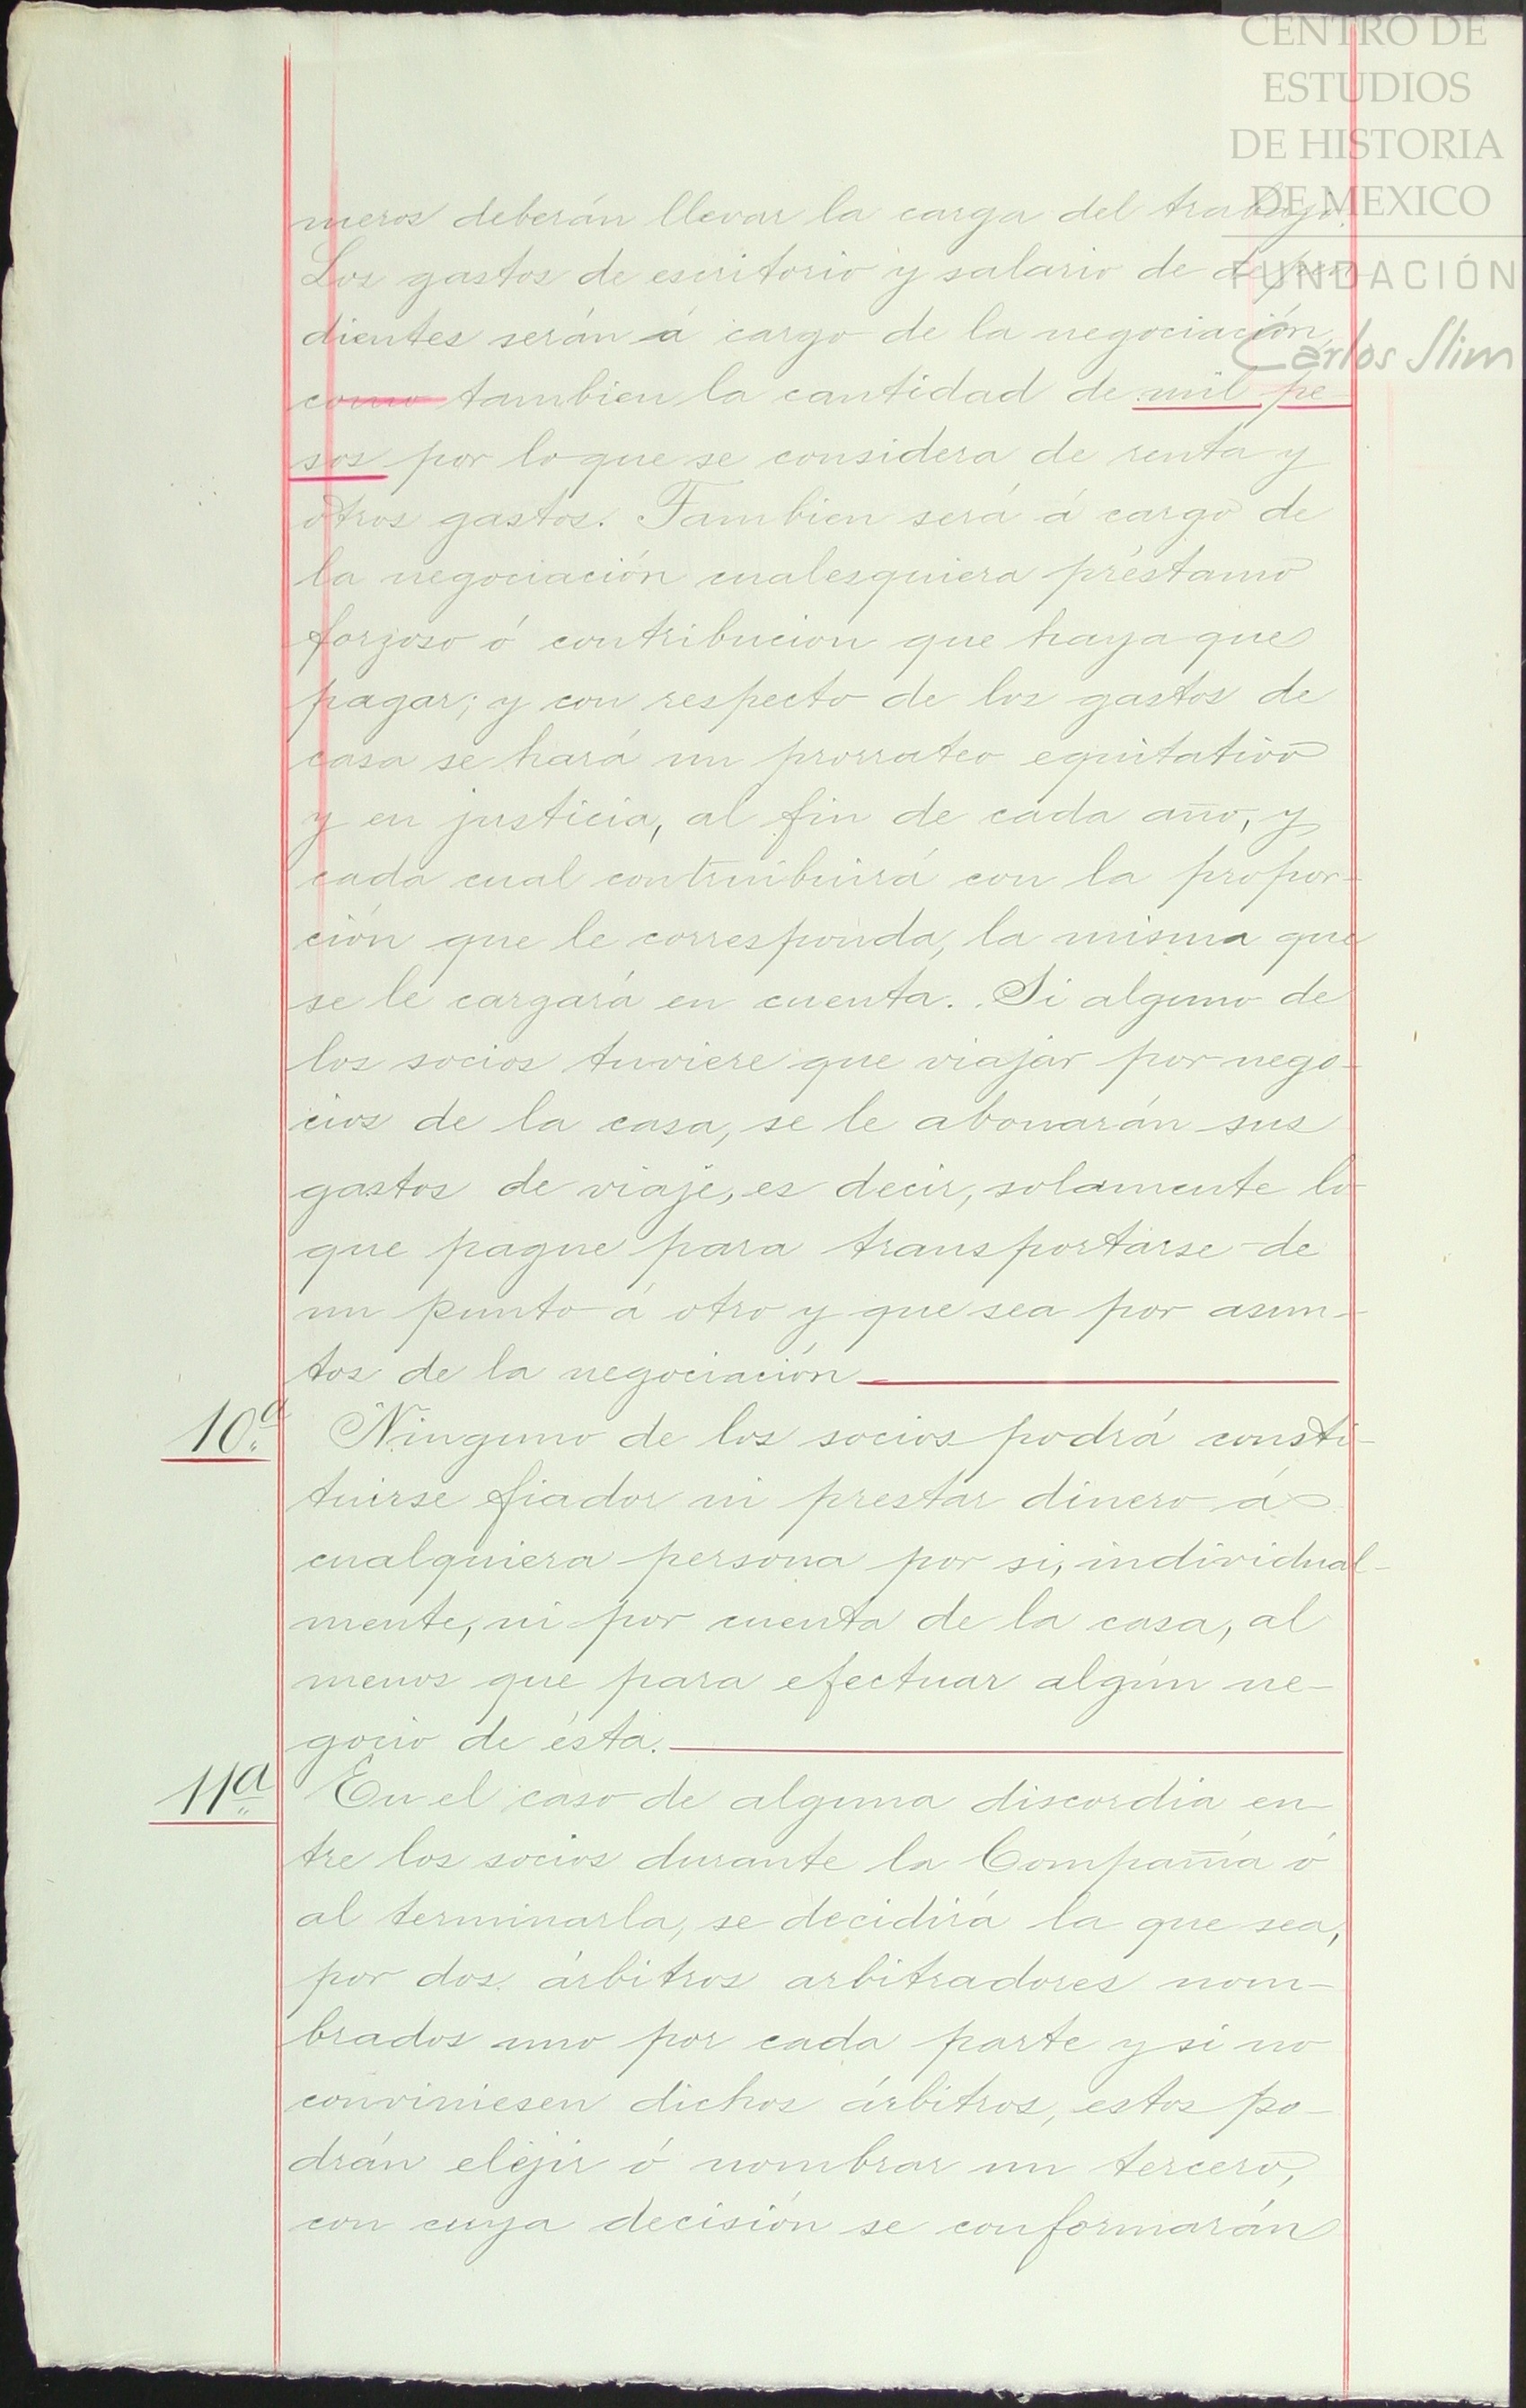 CENTRO DE
ESTUDIOS
DE HISTORIA
DE MEXICO
FUNDACIÓN
Carlos Slim
meros deberán llevar la carga del trabajo.
Los gastos de escritorio y salario de depen
dientes serán á cargo de la negociación,
como tambien la cantidad de mil pe
sos por lo que se considera de renta y
otros gastos. Tambien será á cargo de
la negociación cualesquiera préstamo
forzoso ó contribucion que haya que
pagar; y con respecto de los gastos de
casa se hará un prorrateo equitativo
y en justicia, al fin de cada año, y
cada cual contruibuirá con la propor-
ción que le corresponda, la misma que
se le cargará en cuenta. Si alguno de
los socios tuviere que viajar por nego-
cios de la casa, se le abonarán sus
gastos de viaje, es decir, solamente lo
que pague para transportarse de
un punto á otro y que sea por asun-
tos de la negociación
10.ª Ninguno de los socios podrá consti-
tuirse fiador ni prestar dinero á
cualquiera persona por si, individual-
mente, ni por cuenta de la casa, al
menos que para efectuar algún ne-
gocio de ésta.
11.ª En el caso de alguna discordia en-
tre los socios durante la Compañía ó
al terminarla, se decidirá la que sea,
por dos árbitros arbitradores nom-
brados uno por cada parte y si no
conviniesen dichos árbitros, estos po-
drán elejir ó nombrar un tercero,
con cuya decisión se conformarán